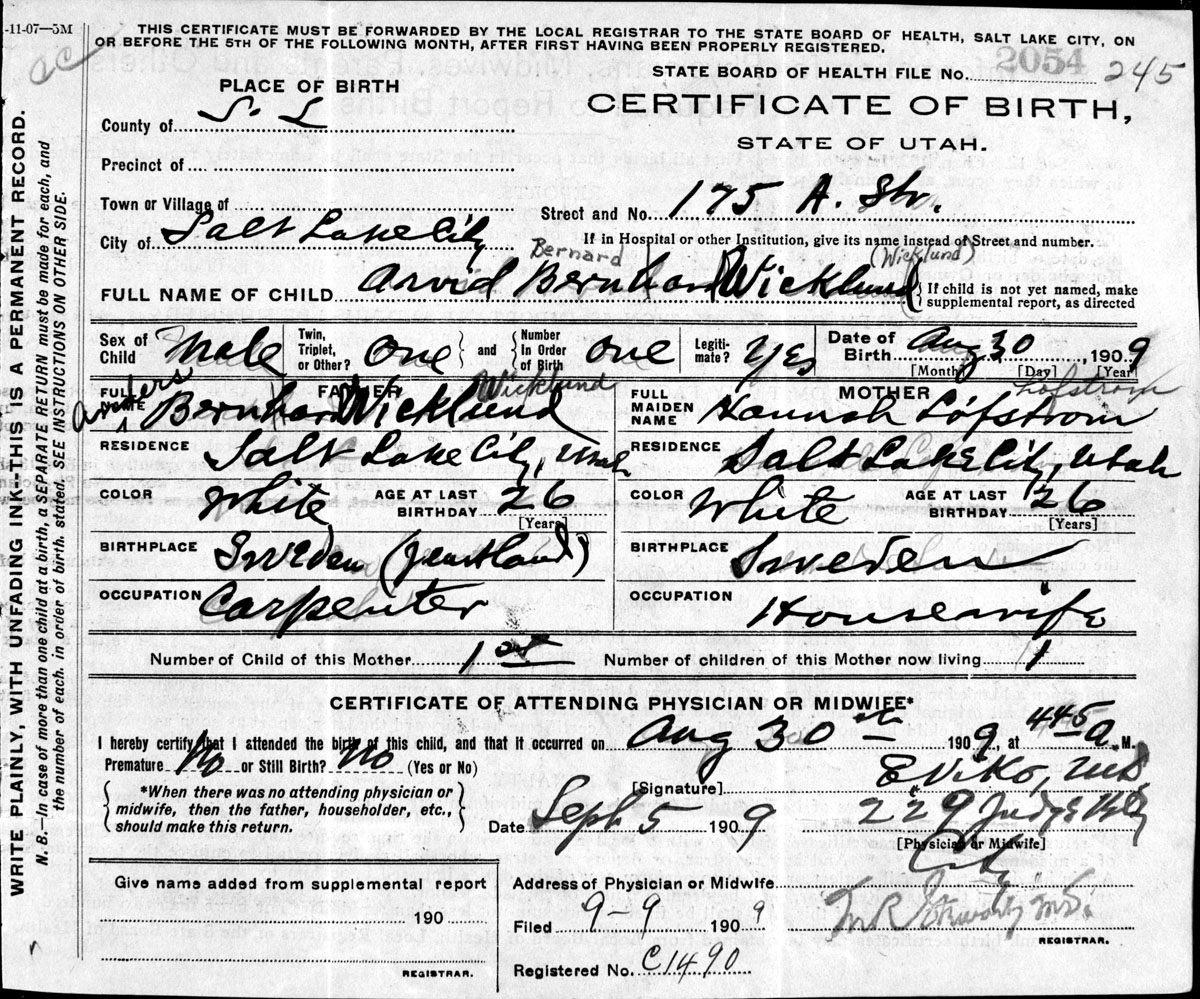 -11-07-5M
THIS CERTIFICATE MUST BE FORWARDED BY THE LOCAL REGISTRAR TO THE STATE BOARD OF HEALTH, SALT LAKE CITY, ON
OR BEFORE THE 5TH OF THE FOLLOWING MONTH, AFTER FIRST HAVING BEEN PROPERLY REGISTERED.
WRITE PLAINLY, WITH UNFADING INK—THIS IS A PERMANENT RECORD.
N. B.—In case of more than one child at a birth, a SEPARATE RETURN must be made for each, and
the number of each, in order of birth, stated. SEE INSTRUCTIONS ON OTHER SIDE.
STATE BOARD OF HEALTH FILE No. 2054 245
PLACE OF BIRTH
CERTIFICATE OF BIRTH,
STATE OF UTAH.
County of S. L
Precinct of
Town or Village of
Street and No. 175 A. Str.
City of Salt Lake City
If in Hospital or other Institution, give its name instead of Street and number.
Bernard (Wicklund)
FULL NAME OF CHILD Arvid Bernhard Wicklund
{ If child is not yet named, make
supplemental report, as directed
Sex of Child Male
Twin, Triplet, or Other? One } and { Number In Order of Birth One
Legiti-mate? Yes
Date of Birth Aug 30, 1909
[Month] [Day] [Year]
FATHER
FULL NAME Anders Bernhard Wicklund
Wicklund
RESIDENCE Salt Lake City, Utah
COLOR White AGE AT LAST BIRTHDAY 26
[Years]
BIRTHPLACE Sweden (Jemtland)
OCCUPATION Carpenter
MOTHER
Lofstrom
FULL MAIDEN NAME Hannah Löfstrom
RESIDENCE Salt Lake City, Utah
COLOR White AGE AT LAST BIRTHDAY 26
[Years]
BIRTHPLACE Sweden
OCCUPATION Housewife
Number of Child of this Mother 1st Number of children of this Mother now living 1
CERTIFICATE OF ATTENDING PHYSICIAN OR MIDWIFE*
I hereby certify that I attended the birth of this child, and that it occurred on Aug 30th 1909, at 445 a. M.
Premature No or Still Birth? No (Yes or No)
{ *When there was no attending physician or
midwife, then the father, householder, etc.,
should make this return. }
[Signature] M.D.
Date Sept 5 1909 229 Judge Bldg
[Physician or Midwife]
Address of Physician or Midwife City
Give name added from supplemental report
190
REGISTRAR.
Filed 9-9 1909
REGISTRAR.
Registered No. C1490